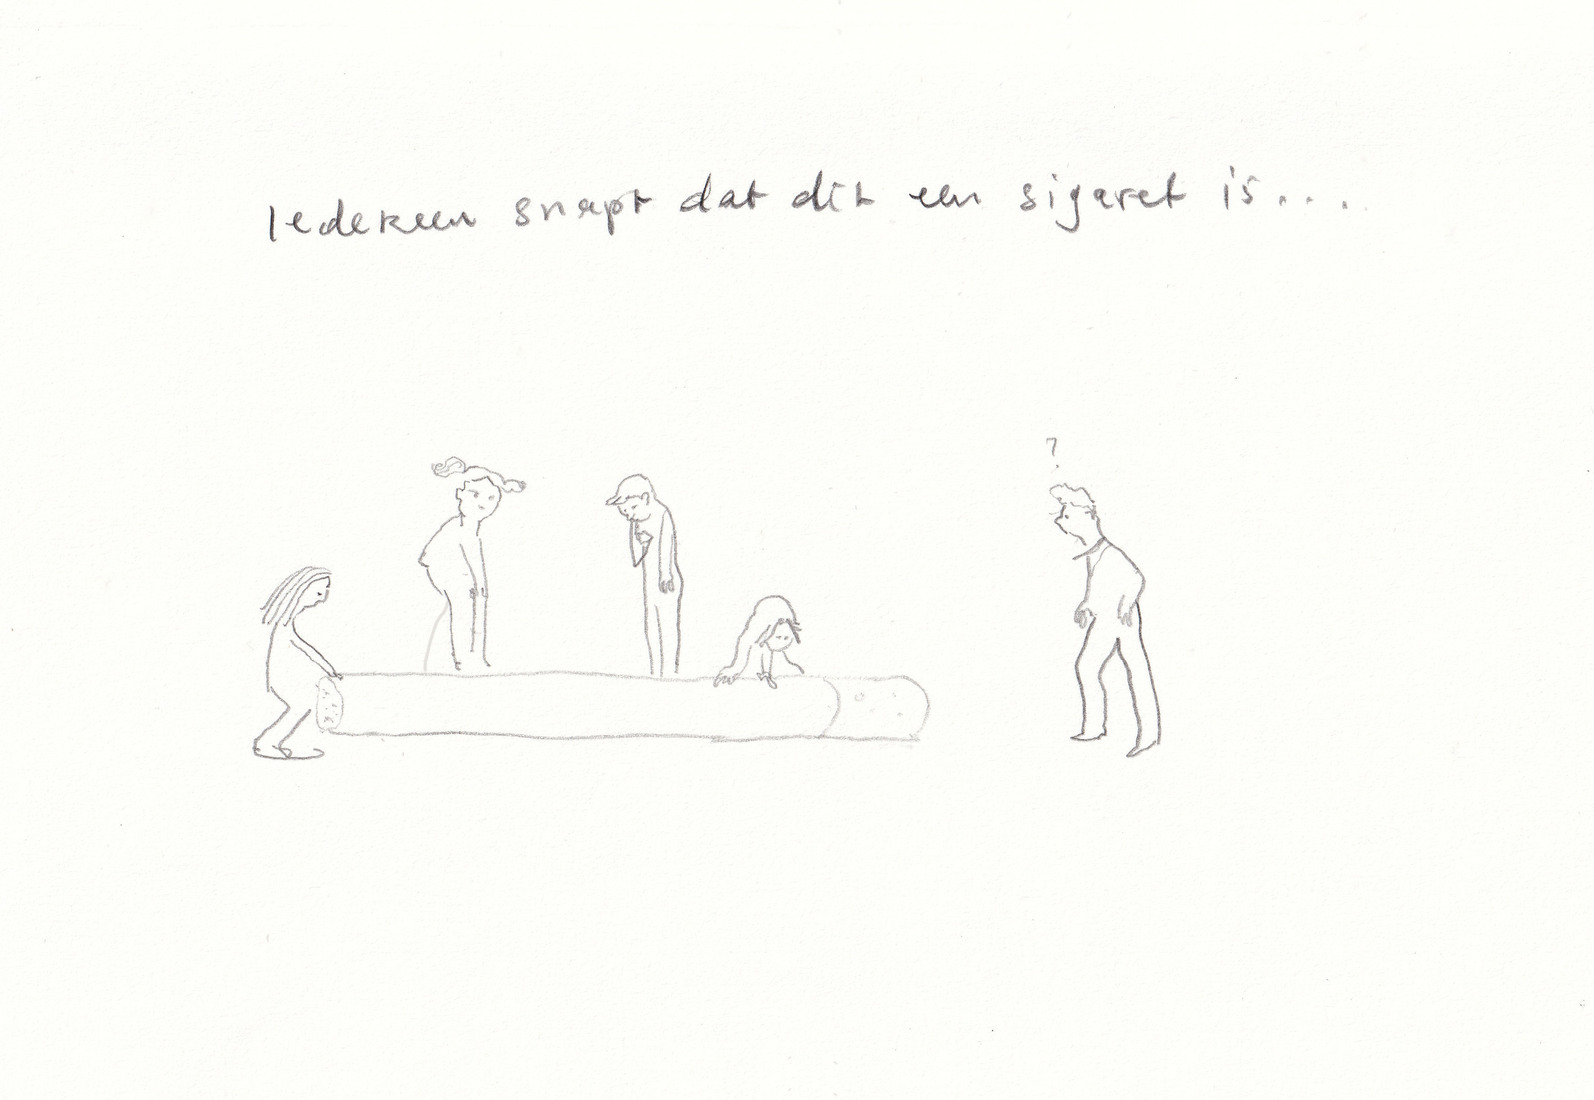 Iedereen snapt dat dit een sigaret is....
?